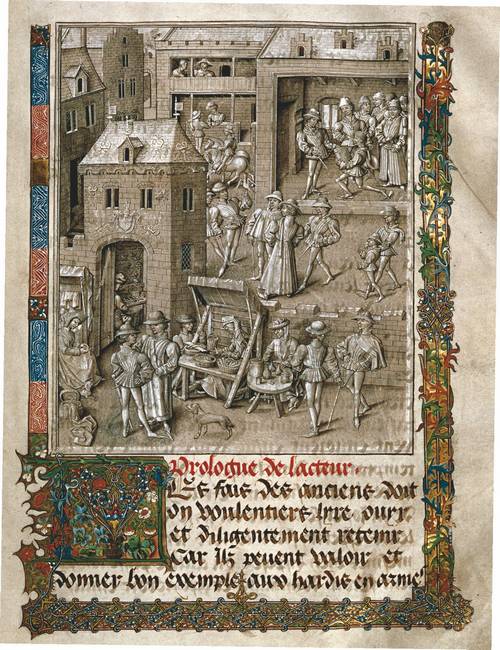 Prologue de lacteur.
LEs fais des anciens doit
on voulentiers lyre ouyr.
et diligentement retenir
Car Ilz peuent valoir et
donner bon exemple aux hardis en armes